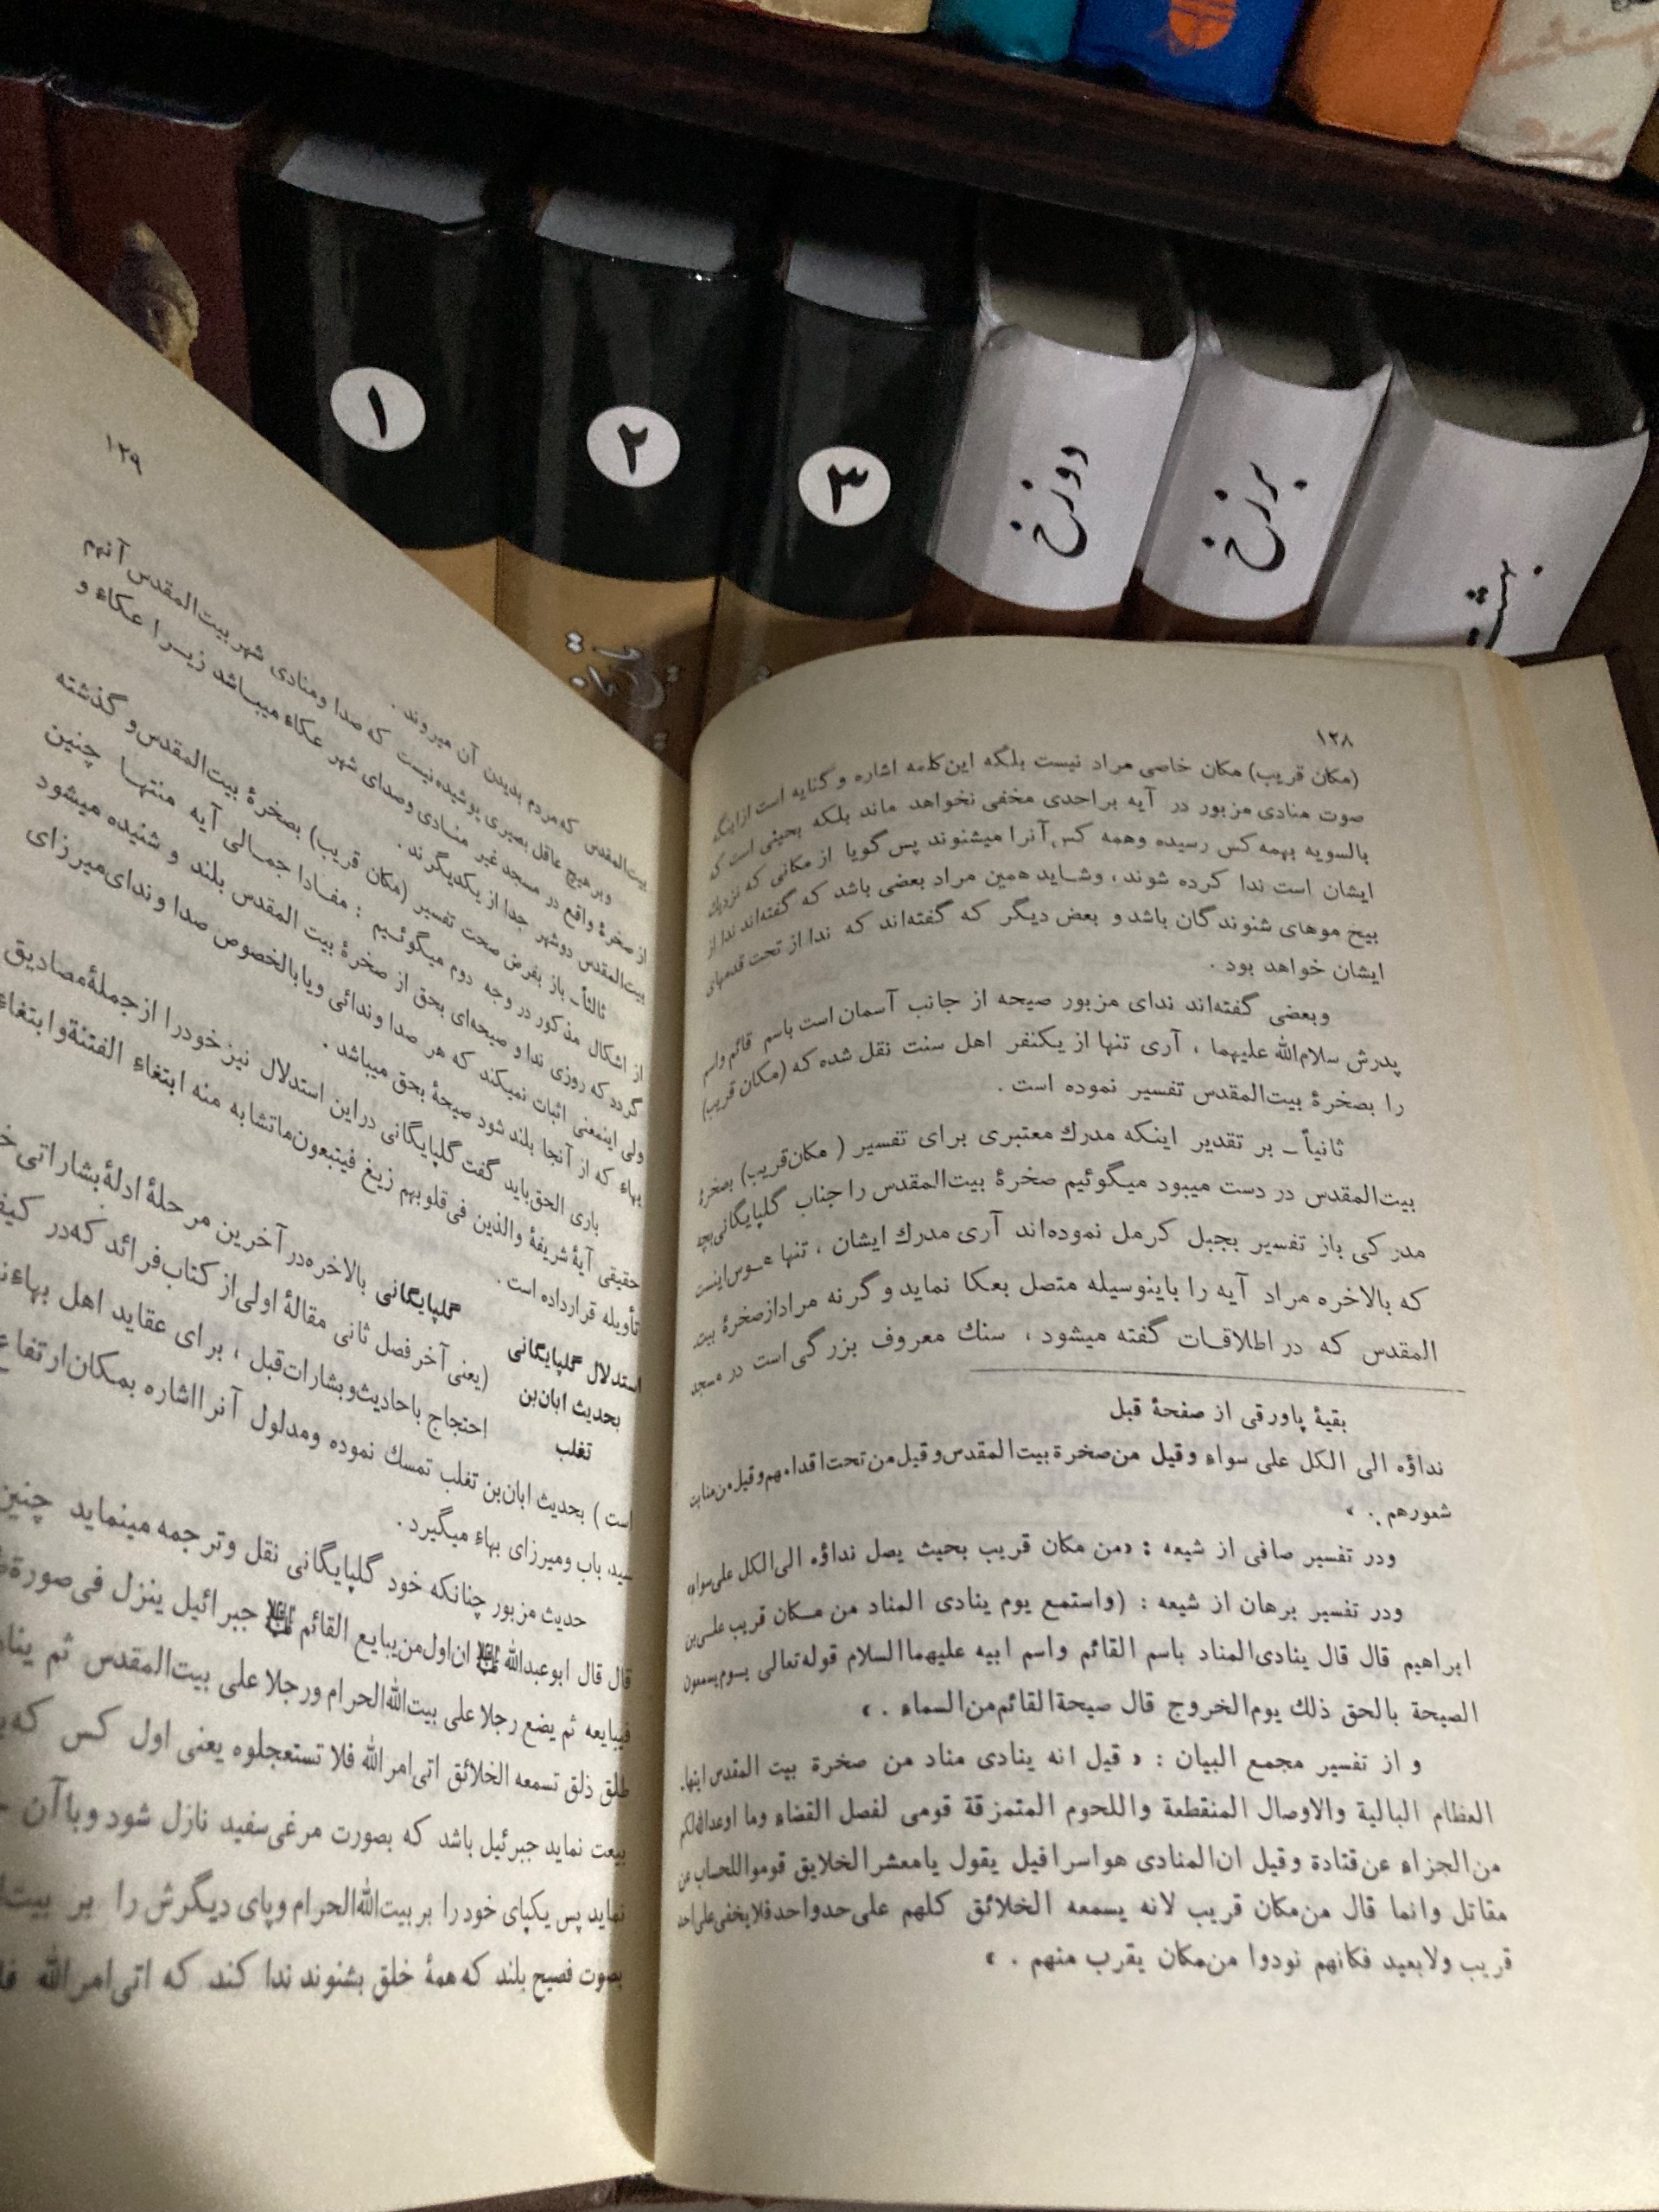 ۱
۲
۳
دوزخ
برزخ
بهشت
۱۲۸
(مکان قریب) مکان خاصی مراد نیست بلکه این کلمه اشاره و کنایه است از اینکه
صوت منادی مزبور در آیه بر احدی مخفی نخواهد ماند بلکه بحیثی است که
بالسویه بهمه کس رسیده وهمه کس آنرا میشنوند پس گویا از مکانی که نزدیك
ایشان است ندا کرده شوند ، وشاید همین مراد بعضی باشد که گفته‌اند ندا از
بیخ موهای شنوندگان باشد و بعض دیگر که گفته‌اند که ندا از تحت قدمهای
ایشان خواهد بود .
وبعضی گفته‌اند ندای مزبور صیحه از جانب آسمان است باسم قائم واسم
پدرش سلام‌الله علیهما ، آری تنها از یکنفر اهل سنت نقل شده که (مکان قریب)
را بصخرۀ بیت‌المقدس تفسیر نموده است .
ثانیاً ـ بر تقدیر اینکه مدرك معتبری برای تفسیر ( مکان قریب) بصخرۀ
بیت‌المقدس در دست میبود میگوئیم صخرۀ بیت‌المقدس را جناب گلپایگانی بچه
مدرکی باز تفسیر بجبل کرمل نموده‌اند آری مدرك ایشان ، تنها اینست
که بالاخره مراد آیه را باینوسیله متصل بعکا نماید و گرنه مراد از صخرۀ بیت
المقدس که در اطلاقات گفته میشود ، سنك معروف بزرگی است در مسجد
بقیۀ پاورقی از صفحۀ قبل
نداؤه الی الکل علی سواء وقیل من صخرة بیت‌المقدس وقیل من تحت اقدامهم وقیل من منابت
شعورهم . »
ودر تفسیر صافی از شیعه : «من مکان قریب بحیث یصل نداؤه الی الکل علی سواء»
ودر تفسیر برهان از شیعه : (واستمع یوم ینادی المناد من مکان قریب علی بن
ابراهیم قال قال ینادی المناد باسم القائم واسم ابیه علیهما السلام قوله تعالی یوم یسمعون
الصیحة بالحق ذلك یوم الخروج قال صیحة القائم من السماء . »
و از تفسیر مجمع البیان : « قیل انه ینادی مناد من صخرة بیت المقدس ایتها
العظام البالیة والاوصال المنقطعة واللحوم المتمزقة قومی لفصل القضاء وما اوعدالله لکم
من الجزاء عن قتادة وقیل ان المنادی هو اسرافیل یقول یا معشر الخلایق قوموا للحساب عن
مقاتل وانما قال من مکان قریب لانه یسمعه الخلائق کلهم علی حد واحد فلا یخفی علی احد
قریب ولابعید فکانهم نودوا من مکان یقرب منهم . »
۱۲۹
بیت‌المقدس که مردم بدیدن آن میروند .
وبر هیچ عاقل بصیری پوشیده نیست که صدا ومنادی شهر بیت‌المقدس آنهم
از صخرۀ واقع در مسجد غیر منادی وصدای شهر عکاء میباشد زیرا عکاء و
بیت‌المقدس دوشهر جدا از یکدیگرند .
ثالثاً ـ باز بفرض صحت تفسیر (مکان قریب) بصخرۀ بیت‌المقدس و گذشته
از اشکال مذکور در وجه دوم میگوئیم : مفادا جمالی آیه منتها چنین
گردد که روزی ندا و صیحه‌ای بحق از صخرۀ بیت المقدس بلند و شنیده میشود
ولی اینمعنی اثبات نمیکند که هر صدا وندائی ویا بالخصوص صدا وندای میرزای
بهاء که از آنجا بلند شود صیحۀ بحق میباشد .
باری الحق باید گفت گلپایگانی در این استدلال نیز خود را از جملۀ مصادیق
حقیقی آیۀ شریفۀ والذین فی قلوبهم زیغ فیتبعون ماتشابه منه ابتغاء الفتنة وابتغاء
تأویله قرار داده است .
استدلال گلپایگانی
بحدیث ابان‌بن
تغلب
گلپایگانی بالاخره در آخرین مرحلۀ ادلۀ بشاراتی
(یعنی آخر فصل ثانی مقالۀ اولی از کتاب فرائد که در
احتجاج باحادیث وبشارات قبل ، برای عقاید اهل بهاء
است ) بحدیث ابان‌بن تغلب تمسك نموده ومدلول آنرا اشاره بمکان ارتفاع
سید باب ومیرزای بهاء میگیرد .
حدیث مزبور چنانکه خود گلپایگانی نقل وترجمه مینماید چنین
قال قال ابو عبدالله علیه‌السلام ان اول من یبایع القائم علیه‌السلام جبرائیل ینزل فی صورة
فیبایعه ثم یضع رجلا علی بیت‌الله الحرام ورجلا علی بیت‌المقدس ثم
طلق ذلق تسمعه الخلائق اتی امر الله فلا تستعجلوه یعنی اول کس که
بیعت نماید جبرئیل باشد که بصورت مرغی سفید نازل شود وباآن
نماید پس یکپای خود را بر بیت‌الله الحرام وپای دیگرش را بر
بصوت فصیح بلند که همۀ خلق بشنوند ندا کند که اتی امر الله